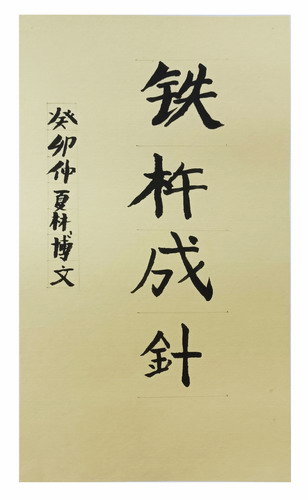 铁杵成針
癸卯仲夏林博文